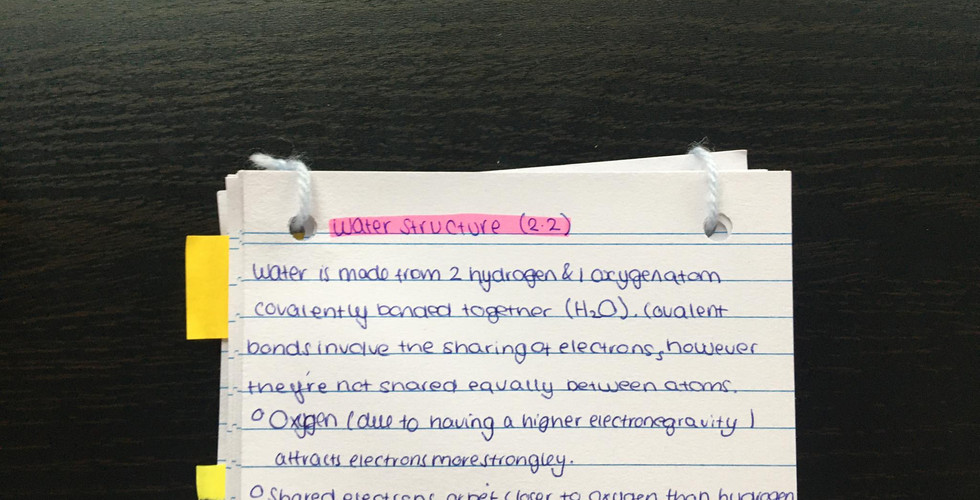 Water structure (2.2)
Water is made from 2 hydrogen & 1 oxygen atom
covalently bonded together (H₂O). Covalent
bonds involve the sharing of electrons, however
they're not shared equally between atoms.
Oxygen (due to having a higher electronegravity)
attracts electrons more strongley.
Shared electrons orbit closer to oxygen than hydrogen